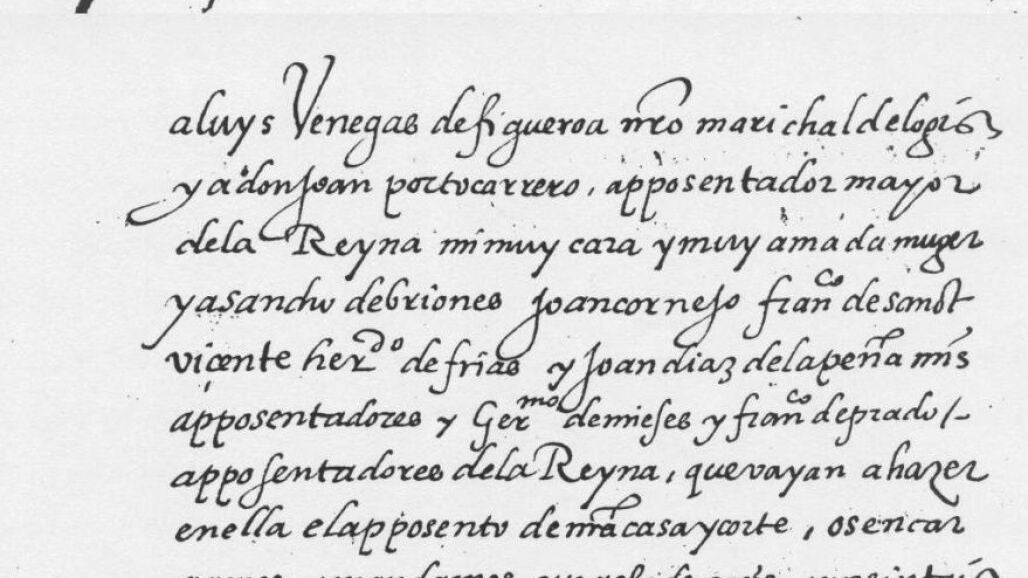 a luys Venegas de figueroa nr̃o marichal de logis
y a don Joan portocarrero, apposentador mayor
de la Reyna mi muy cara y muy amada muger
y a sancho de briones Joan cornejo fran^co de sanct
vicente her^do de frias y Joan diaz de la peña mis
apposentadores y Ger^mo de mieses y fran^co de prado
apposentadores de la Reyna, que vayan a hazer
en ella el apposento de nr̃a casa y corte, os encar